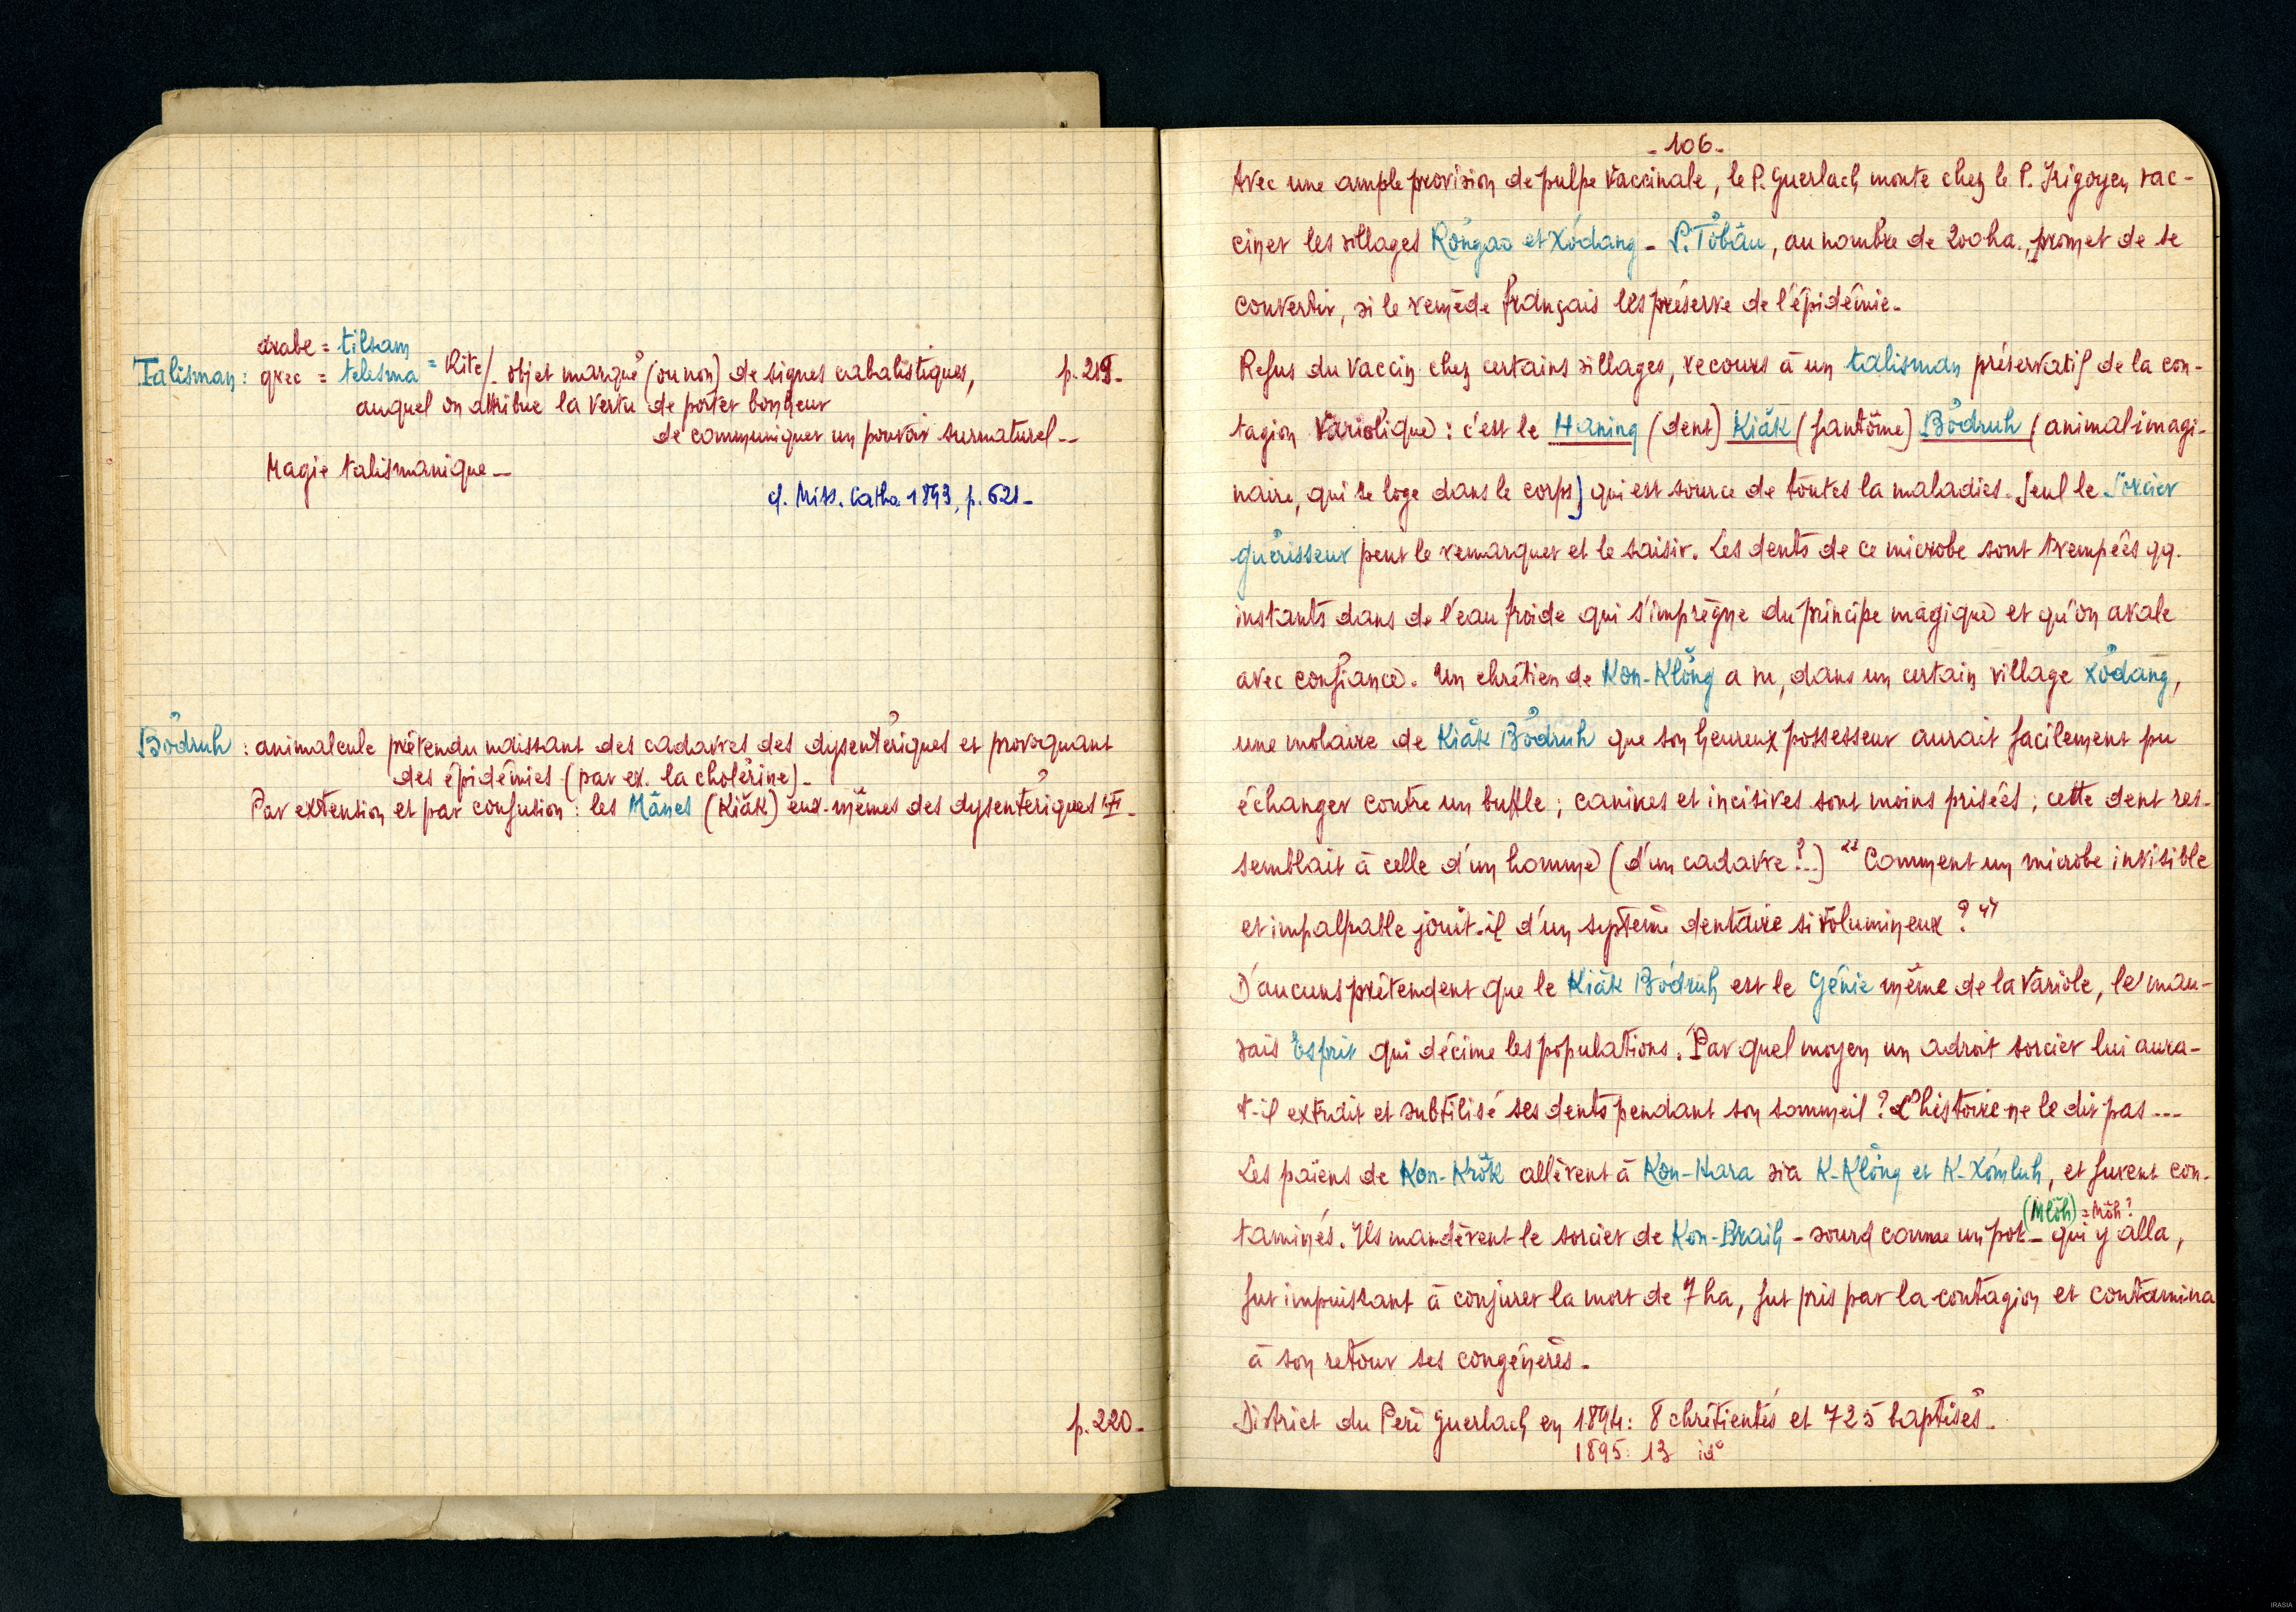 arabe = tilsam
Talisman : grec = telesma = Rite / objet marqué (ou non) de signes cabalistiques, p. 219.
auquel on attribue la vertu de porter bonheur
de communiquer un pouvoir surnaturel --
Magie talismanique _
cf. Miss. Catho 1893, p. 621 _
Bŏ̉druh : animalcule prétendu naissant des cadavres des dysentériques et provoquant
des épidémies (par ex. la cholérine) _
Par extension et par confusion : les Mânes (Kiăk) eux-mêmes des dysentériques
p. 220 _
- 106 -
Avec une ample provision de pulpe vaccinale, le P. Guerlach monte chez le P. Irigoyen, vac-
ciner les villages Rơngao et Xơdang - P. Tơbâu, au nombre de 200 ha., promet de se
convertir, si le remède français les préserve de l'épidémie _
Refus du vaccin chez certains villages, recours à un talisman préservatif de la con-
tagion variolique : c'est le Haning (dent) Kiăk (fantôme) Bơdruh (animal imagi-
naire, qui se loge dans le corps) qui est source de toutes la maladies. Seul le sorcier
guérisseur peut le remarquer et le saisir. Les dents de ce microbe sont trempées qq.
instants dans de l'eau froide qui s'imprègne du principe magique et qu'on avale
avec confiance. Un chrétien de Kon-Klŏng a vu, dans un certain village Xơdang,
une molaire de Kiăk Bơdruh que son heureux possesseur aurait facilement pu
échanger contre un buffle ; canines et incisives sont moins prisées ; cette dent res-
semblait à celle d'un homme (d'un cadavre ?..) "Comment un microbe invisible
et impalpable jouit-il d'un système dentaire si volumineux ?"
D'aucuns prétendent que le Kiăk Bơdruh est le Génie même de la variole, le mau-
vais Esprit qui décime les populations. Par quel moyen un adroit sorcier lui aura-
t-il extrait et subtilisé ses dents pendant son sommeil ? L'histoire ne le dit pas ---
Les païens de Kon-Krŏk allèrent à Kon-Hara via K-Klŏng et K-Xơmluh, et furent con-
(Mlŏh) = Mŏh ?
taminés. Ils mandèrent le sorcier de Kon-Braih - sourd comme un pot - qui y alla,
fut impuissant à conjurer la mort de 7 ha, fut pris par la contagion et contamina
à son retour ses congénères _
District du Père Guerlach en 1894 : 8 chrétientés et 725 baptisés _
1895 : 13 id°